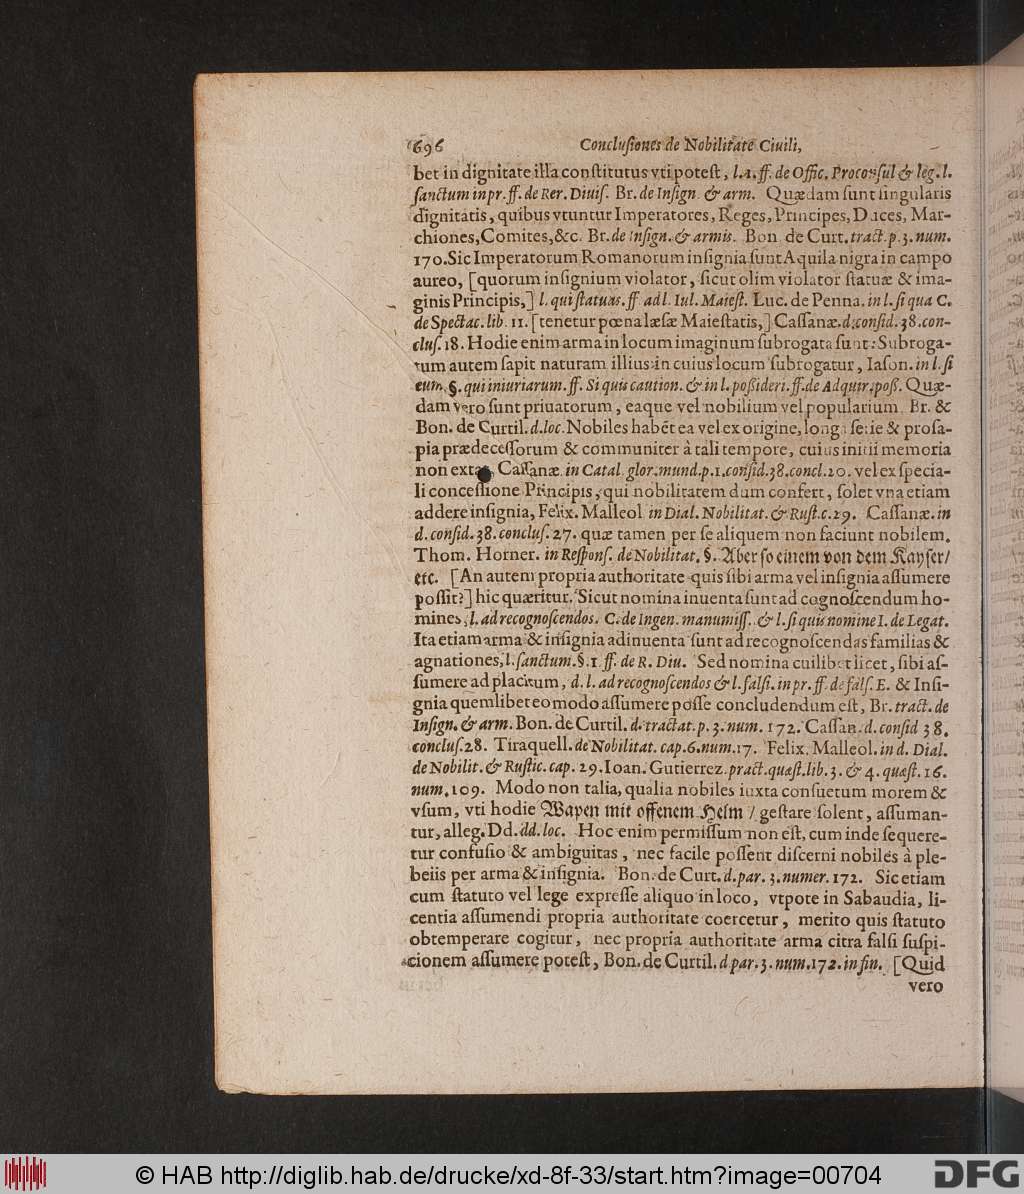 696 Concluſiones de Nobilitate Ciuili,
bet in dignitate illa conſtitutus vti poteſt, l.1. ff. de Offic. Proconſul & leg. l.
ſanctum in pr. ff. de Rer. Diuiſ. Br. de Inſign. & arm. Quædam ſunt ſingularis
dignitatis, quibus vtuntur Imperatores, Reges, Principes, Duces, Mar-
chiones, Comites, &c. Br. de inſign. & armis. Bon. de Curt. tract. p. 3. num.
170. Sic Imperatorum Romanorum inſignia ſunt Aquila nigra in campo
aureo, [quorum inſignium violator, ſicut olim violator ſtatuæ & ima-
ginis Principis,] l. qui ſtatuas. ff. ad l. Iul. Maieſt. Luc. de Penna. in l. ſi qua C.
de Spectac. lib. 11. [tenetur pœna læſæ Maieſtatis,] Caſſanæ. d. conſid. 38. con-
cluſ. 18. Hodie enim arma in locum imaginum ſubrogata ſunt: Subroga-
tum autem ſapit naturam illius: in cuius locum ſubrogatur, Iaſon. in l. ſi
eum. §. qui iniuriarum. ff. Si quis caution. & in l. poßideri. ff. de Adquir. poß. Quæ-
dam vero ſunt priuatorum, eaque vel nobilium vel popularium. Br. &
Bon. de Curtil. d. loc. Nobiles habēt ea vel ex origine, longa ſerie & proſa-
pia prædeceſſorum & communiter à tali tempore, cuius initii memoria
non extat, Caſſanæ. in Catal. glor. mund. p. 1. conſid. 38. concl. 20. vel ex ſpecia-
li conceſſione Principis, qui nobilitatem dum confert, ſolet vna etiam
addere inſignia, Felix. Malleol in Dial. Nobilitat. & Ruſt. c. 29. Caſſanæ. in
d. conſid. 38. concluſ. 27. quæ tamen per ſe aliquem non faciunt nobilem.
Thom. Horner. in Reſponſ. de Nobilitat. §. Aber ſo einem von dem Kayſer/
etc. [An autem propria authoritate quis ſibi arma vel inſignia aſſumere
poſſit?] hic quæritur. Sicut nomina inuenta ſunt ad cognoſcendum ho-
mines, l. ad recognoſcendos. C. de Ingen. manumiſſ. & l. ſi quis nomine I. de Legat.
Ita etiam arma & inſignia adinuenta ſunt ad recognoſcendas familias &
agnationes, l. ſanctum. §. 1. ff. de R. Diu. Sed nomina cuilibet licet, ſibi aſ-
ſumere ad placitum, d. l. ad recognoſcendos & l. falſi. in pr. ff. de falſ. E. & Inſi-
gnia quemlibet eo modo aſſumere poſſe concludendum eſt, Br. tract. de
Inſign. & arm. Bon. de Curtil. d. tractat. p. 3. num. 172. Caſſan. d. conſid 38.
concluſ. 28. Tiraquell. de Nobilitat. cap. 6. num. 17. Felix. Malleol. in d. Dial.
de Nobilit. & Ruſtic. cap. 29. Ioan. Gutierrez. pract. quæſt. lib. 3. & 4. quæſt. 16.
num. 109. Modo non talia, qualia nobiles iuxta conſuetum morem &
vſum, vti hodie Wapen mit offenem Helm / geſtare ſolent, aſſuman-
tur, alleg. Dd. dd. loc. Hoc enim permiſſum non eſt, cum inde ſequere-
tur confuſio & ambiguitas, nec facile poſſent diſcerni nobiles à ple-
beiis per arma & inſignia. Bon. de Curt. d. par. 3. numer. 172. Sic etiam
cum ſtatuto vel lege expreſſe aliquo in loco, vtpote in Sabaudia, li-
centia aſſumendi propria authoritate coercetur, merito quis ſtatuto
obtemperare cogitur, nec propria authoritate arma citra falſi ſuſpi-
cionem aſſumere poteſt, Bon. de Curtil. d par. 3. num. 172. in fin. [Quid
vero
© HAB http://diglib.hab.de/drucke/xd-8f-33/start.htm?image=00704
DFG